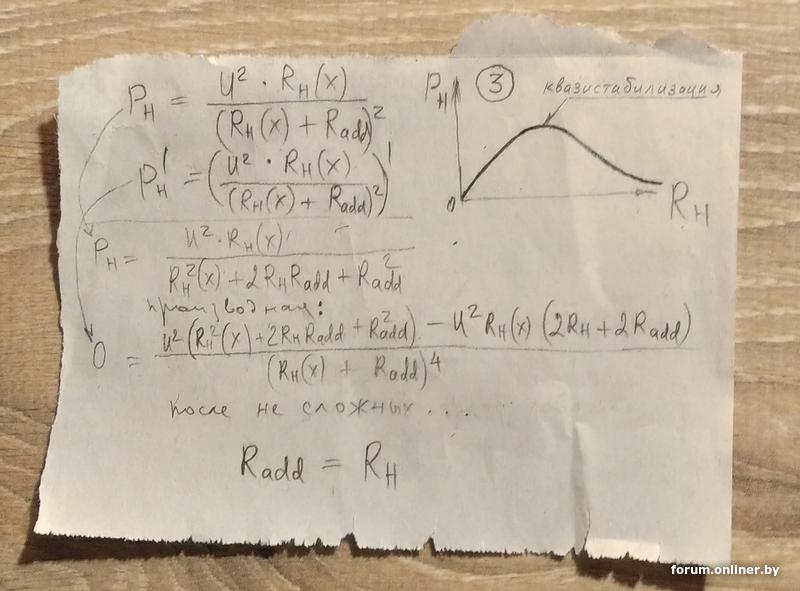 P_H = U² · R_H(x) / (R_H(x) + Radd)²
P_H' = (U² · R_H(x) / (R_H(x) + Radd)²)'
P_H = U² · R_H(x) / R_H²(x) + 2R_H Radd + Radd²
производная:
0 = U²(R_H²(x) + 2R_H Radd + Radd²) − U² R_H(x) (2R_H + 2Radd) / (R_H(x) + Radd)⁴
после не сложных . . . .
Radd = R_H
P_H
③
квазистабилизация
0
R_H
forum.onliner.by